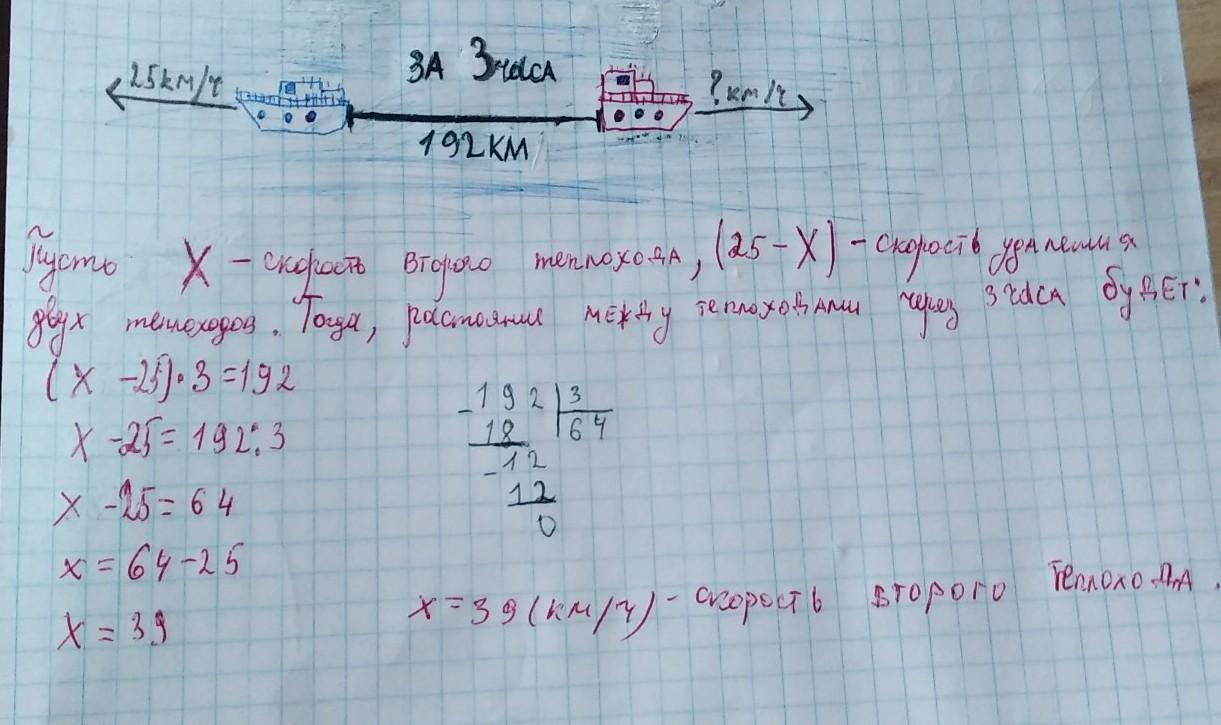 25км/ч
ЗА 3 часА
? км/ч
192КМ
Пусть X – скорость второго теплохода, (25 – X) – скорость удаления
двух теплоходов. Тогда, растояние между теплоходами через 3 часа будет:
(X – 25) · 3 = 192
X – 25 = 192 : 3
X – 25 = 64
X = 64 – 25
X = 39
– 192 | 3
18 64
– 12
12
0
X = 39 (км/ч) – скорость второго теплохода.